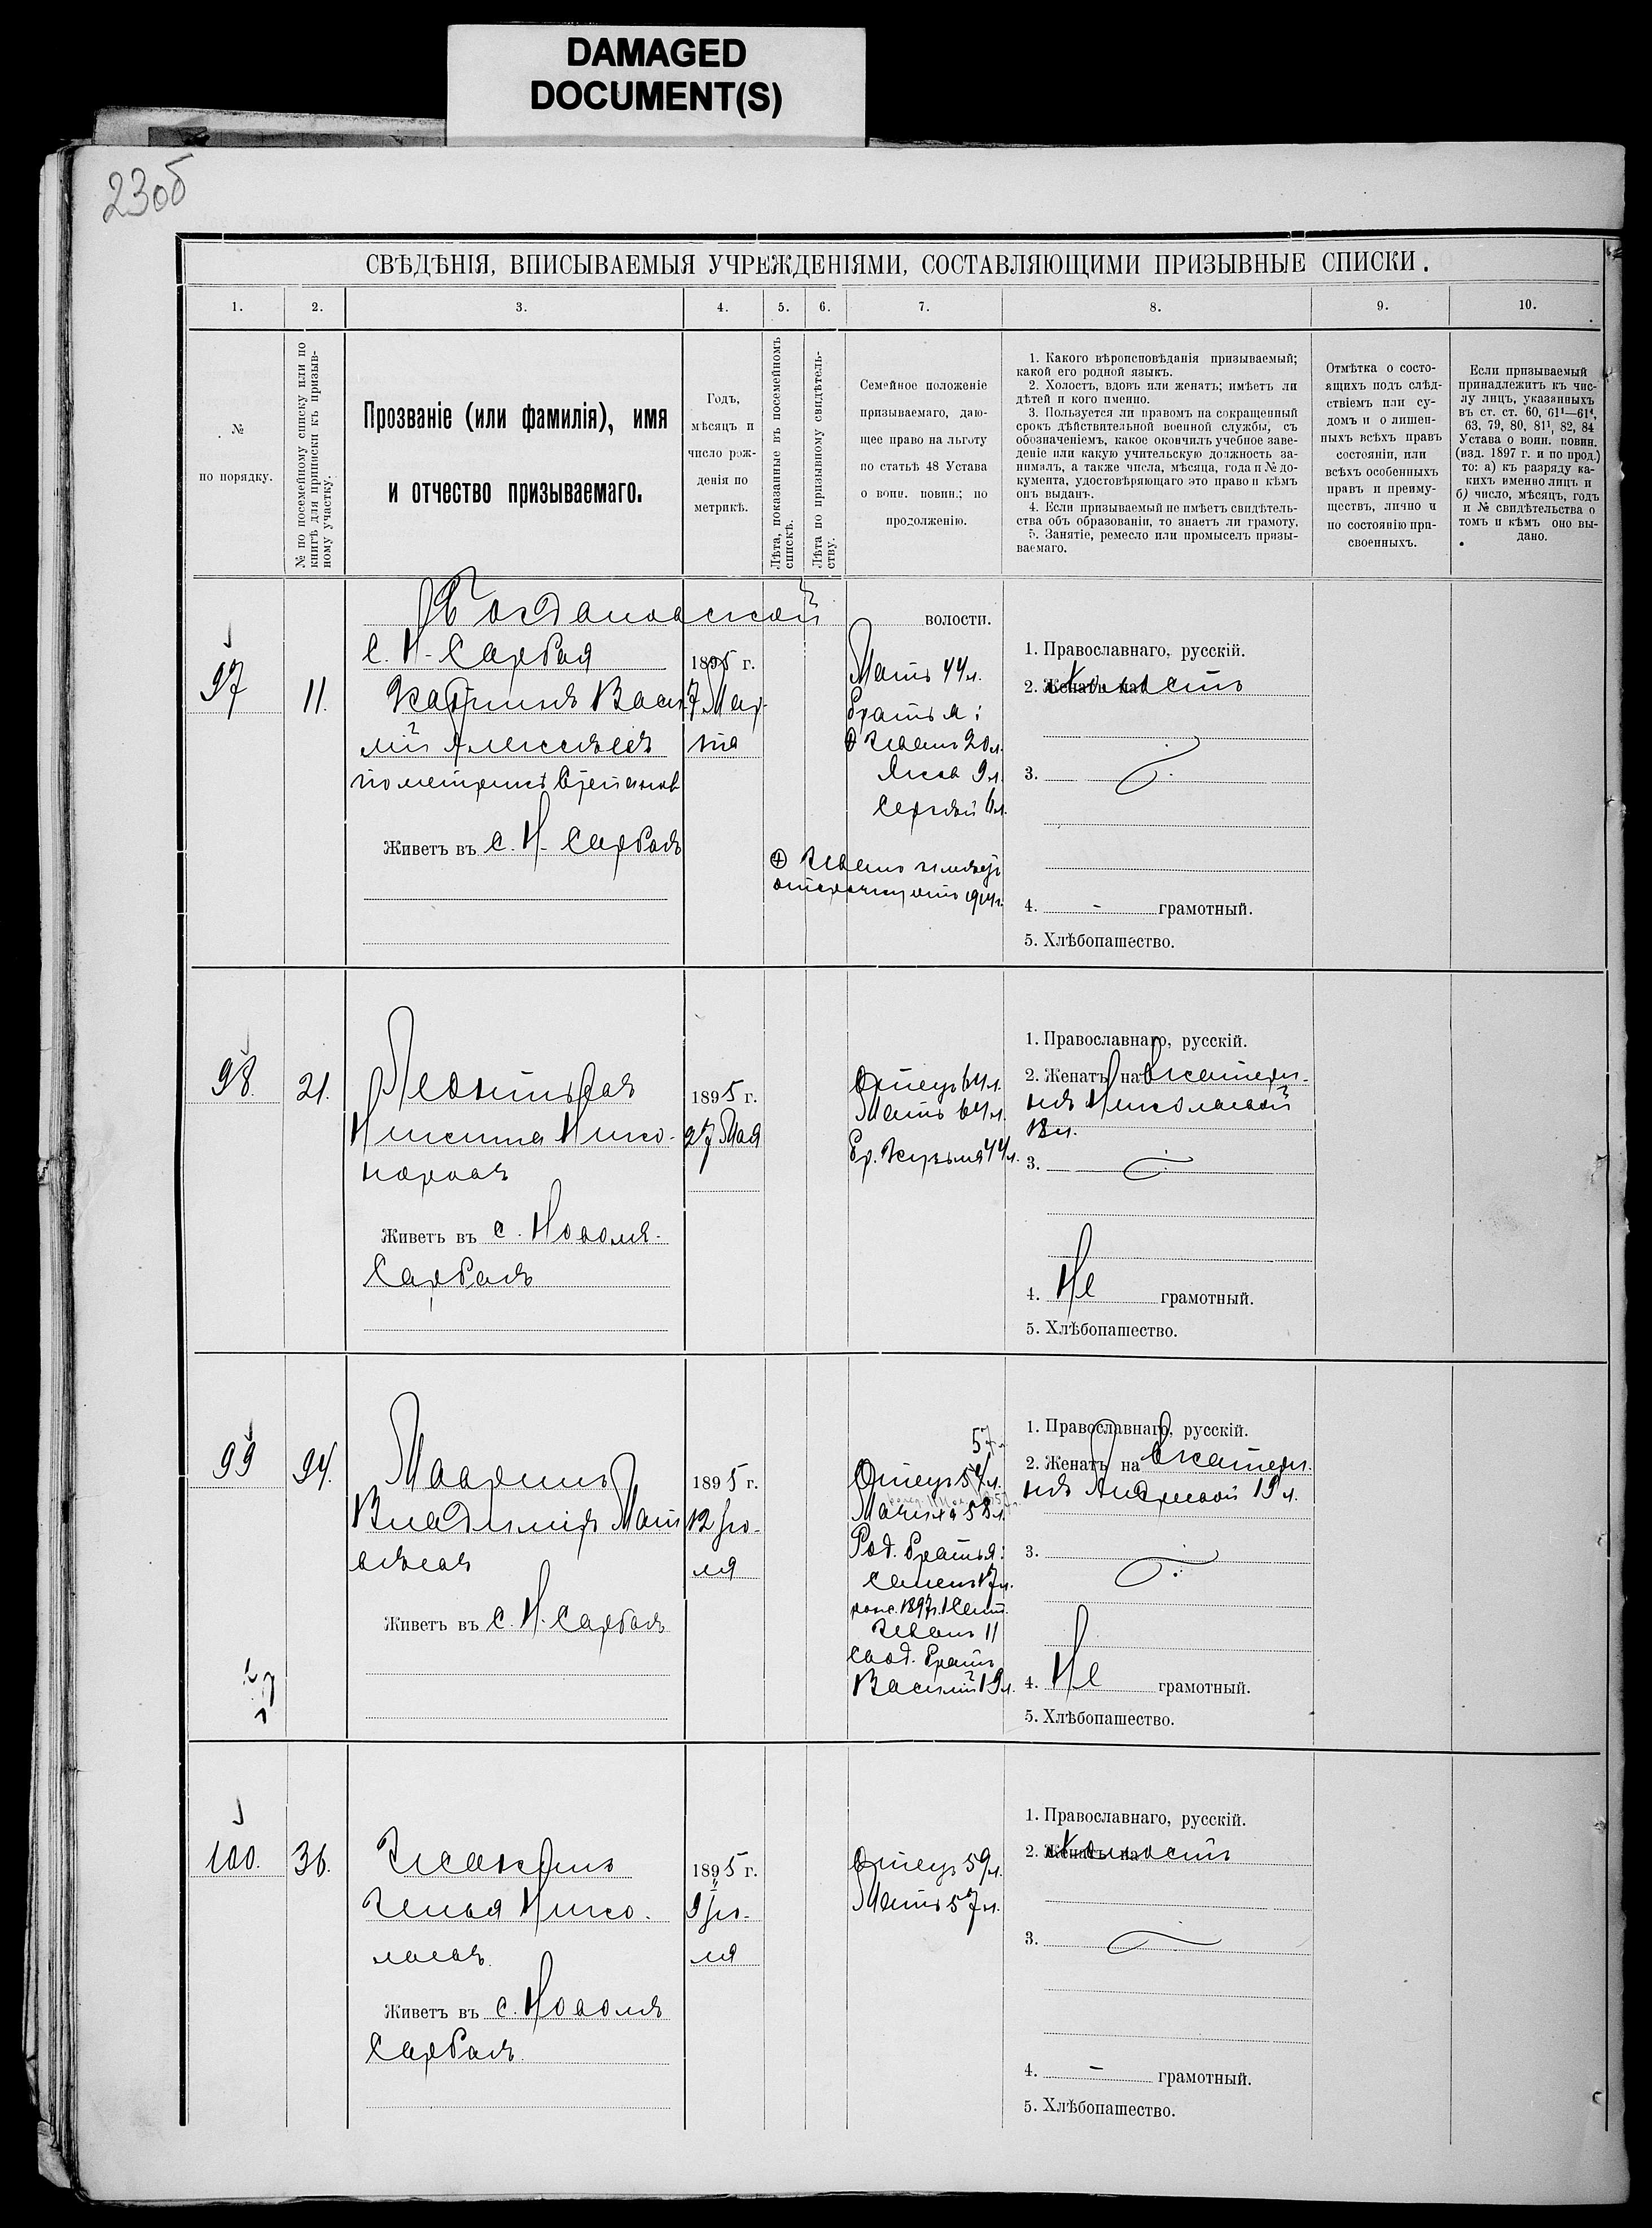 DAMAGED
DOCUMENT(S)
23об
СВѢДѢНІЯ, ВПИСЫВАЕМЫЯ УЧРЕЖДЕНІЯМИ, СОСТАВЛЯЮЩИМИ ПРИЗЫВНЫЕ СПИСКИ.
1. 2. 3. 4. 5. 6. 7. 8. 9. 10.
№
по порядку.
№ по посемейному списку или по
книгѣ для приписки къ призыв-
ному участку.
Прозваніе (или фамилія), имя
и отчество призываемаго.
Годъ,
мѣсяцъ и
число рож-
денія по
метрикѣ.
Лѣта, показанные въ посемейномъ
спискѣ.
Лѣта по призывному свидѣтель-
ству.
Семейное положеніе
призываемаго, даю-
щее право на льготу
по статьѣ 48 Устава
о воин. повин.; по
продолженію.
1. Какого вѣроисповѣданія призываемый;
какой его родной языкъ.
2. Холостъ, вдовъ или женатъ; имѣетъ ли
дѣтей и кого именно.
3. Пользуется ли правомъ на сокращенный
срокъ дѣйствительной военной службы, съ
обозначеніемъ, какое окончилъ учебное заве-
деніе или какую учительскую должность за-
нималъ, а также числа, мѣсяца, года и № до-
кумента, удостовѣряющаго это право и кѣмъ
онъ выданъ.
4. Если призываемый не имѣетъ свидѣтель-
ства объ образованіи, то знаетъ ли грамоту.
5. Занятіе, ремесло или промыселъ призы-
ваемаго.
Отмѣтка о состо-
ящихъ подъ слѣд-
ствіемъ или су-
домъ и о лишен-
ныхъ всѣхъ правъ
состоянія, или
всѣхъ особенныхъ
правъ и преиму-
ществъ, лично и
по состоянію при-
своенныхъ.
Если призываемый
принадлежитъ къ чис-
лу лицъ, указанныхъ
въ ст. ст. 60, 61¹—61⁴,
63, 79, 80, 81¹, 82, 84
Устава о воин. повин.
(изд. 1897 г. и по прод.)
то: а) къ разряду ка-
кихъ именно лицъ и
б) число, мѣсяцъ, годъ
и № свидѣтельства о
томъ и кѣмъ оно вы-
дано.
Богдановской волости.
97
11.
С. Н-Сарбая
Василій Алексѣевъ
по метрикѣ
Живетъ въ с. Н-Сарбаѣ
1895 г.
7 Мар-
та
Мать 44 л.
Братья:
⊕ Иванъ 20 л.
Яковъ 9 л.
Сергѣй 6 л.
⊕ Иванъ имѣетъ
отсрочку отъ 1914 г.
1. Православнаго, русскій.
2. Женатъ на Холостъ
3.
4. - грамотный.
5. Хлѣбопашество.
98.
21.
Леонтьевъ
Никита Ника-
норовъ
Живетъ въ с. Новомъ-
Сарбаѣ
1895 г.
27 Мая
Отецъ 64 л.
Мать 64 л.
Бр. Кузьма 44 л.
1. Православнаго, русскій.
2. Женатъ на Екатери-
нѣ Николаевой
18 л.
3.
4. Не грамотный.
5. Хлѣбопашество.
99
94.
Мавринъ
Владиміръ Мат
вѣевъ
Живетъ въ с. Н. Сарбаѣ
1895 г.
12 Ію-
ля
57
Отецъ 54 л.
Мачиха 58 л.
Род. братья:
Семенъ 17 л.
рожд. 1897 г. 1 Сент.
Иванъ 11
Свод. братъ
Василій 19 л.
1. Православнаго, русскій.
2. Женатъ на Екатери-
нѣ Андреевой 19 л.
3.
4. Не грамотный.
5. Хлѣбопашество.
100.
36.
Исакинъ
Илья Нико-
лаевъ
Живетъ въ с. Новомъ
Сарбаѣ
1895 г.
9 Ію-
ля
Отецъ 59 л.
Мать 57 л.
1. Православнаго, русскій.
2. Женатъ на Холостъ
3.
4. - грамотный.
5. Хлѣбопашество.